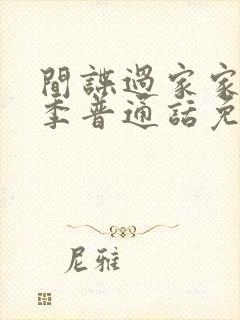 間諜過家家
季普通話免
尼雅